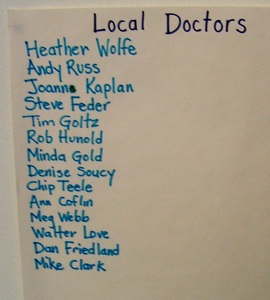 Local Doctors
Heather Wolfe
Andy Russ
Joanne Kaplan
Steve Feder
Tim Goltz
Rob Hunold
Minda Gold
Denise Soucy
Chip Teele
Ann Coflin
Meg Webb
Walter Love
Dan Friedland
Mike Clark